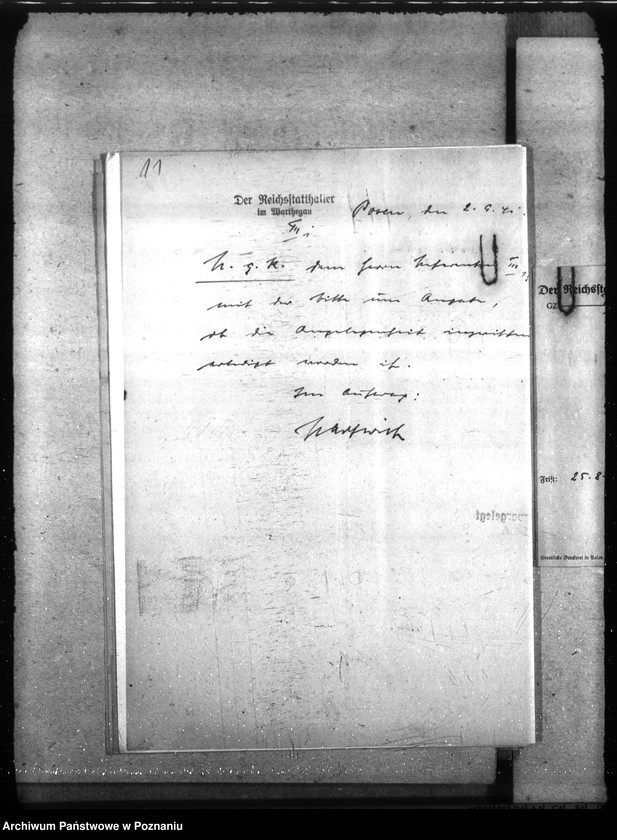 11
Der Reichsstatthalter
im Warthegau
Posen, den 2. 9. 41.
III
U. g. R. dem Herrn Referenten III
mit der Bitte um Angabe,
ob die Angelegenheit inzwischen
erledigt worden ist.
Im Auftrag:
vorgelegt
Der Reichsst
GZ
Frist: 25.8
Archiwum Państwowe w Poznaniu